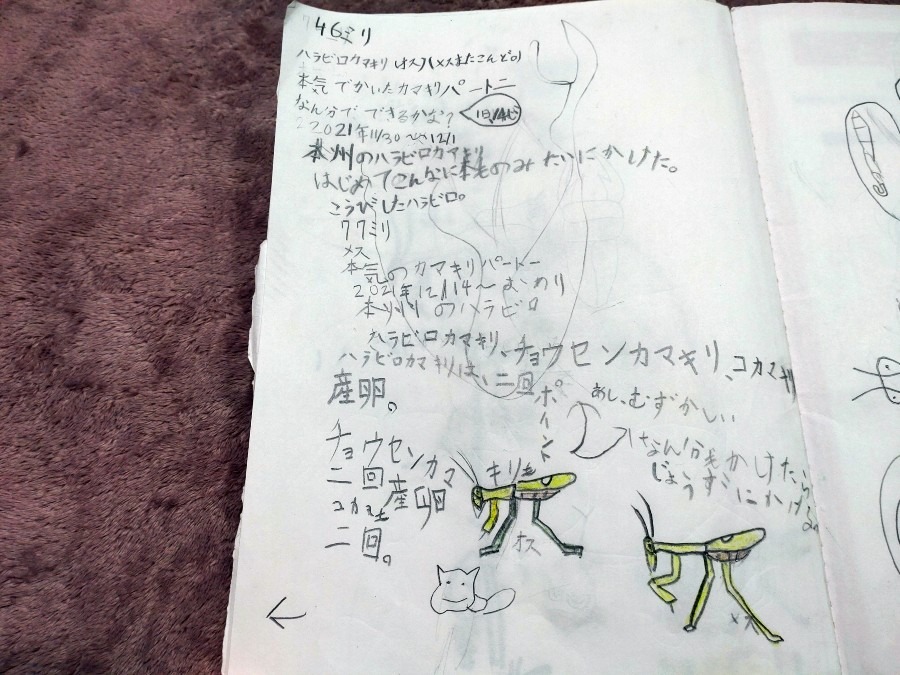 46ミリ
ハラビロカマキリ(オス)(メスまたこんど。)
本気でかいたカマキリパートニ
なん分でできるかな?
2021年11/30〜12/1
本州のハラビロカマキリ
はじめてこんなに本もののみたいにかけた。
こうびしたハラビロ。
77ミリ
メス
本気のカマキリパートー
2021年12/14〜
本州のハラビロ
ハラビロカマキリ、チョウセンカマキリ、コカマキリ
ハラビロカマキリは、二回
産卵。
ポイント
あし、むずかしい
なん分もかけたら
じょうずにかける
チョウセンカマ
キリも
二回産卵
コカマも
二回。
オス
メス